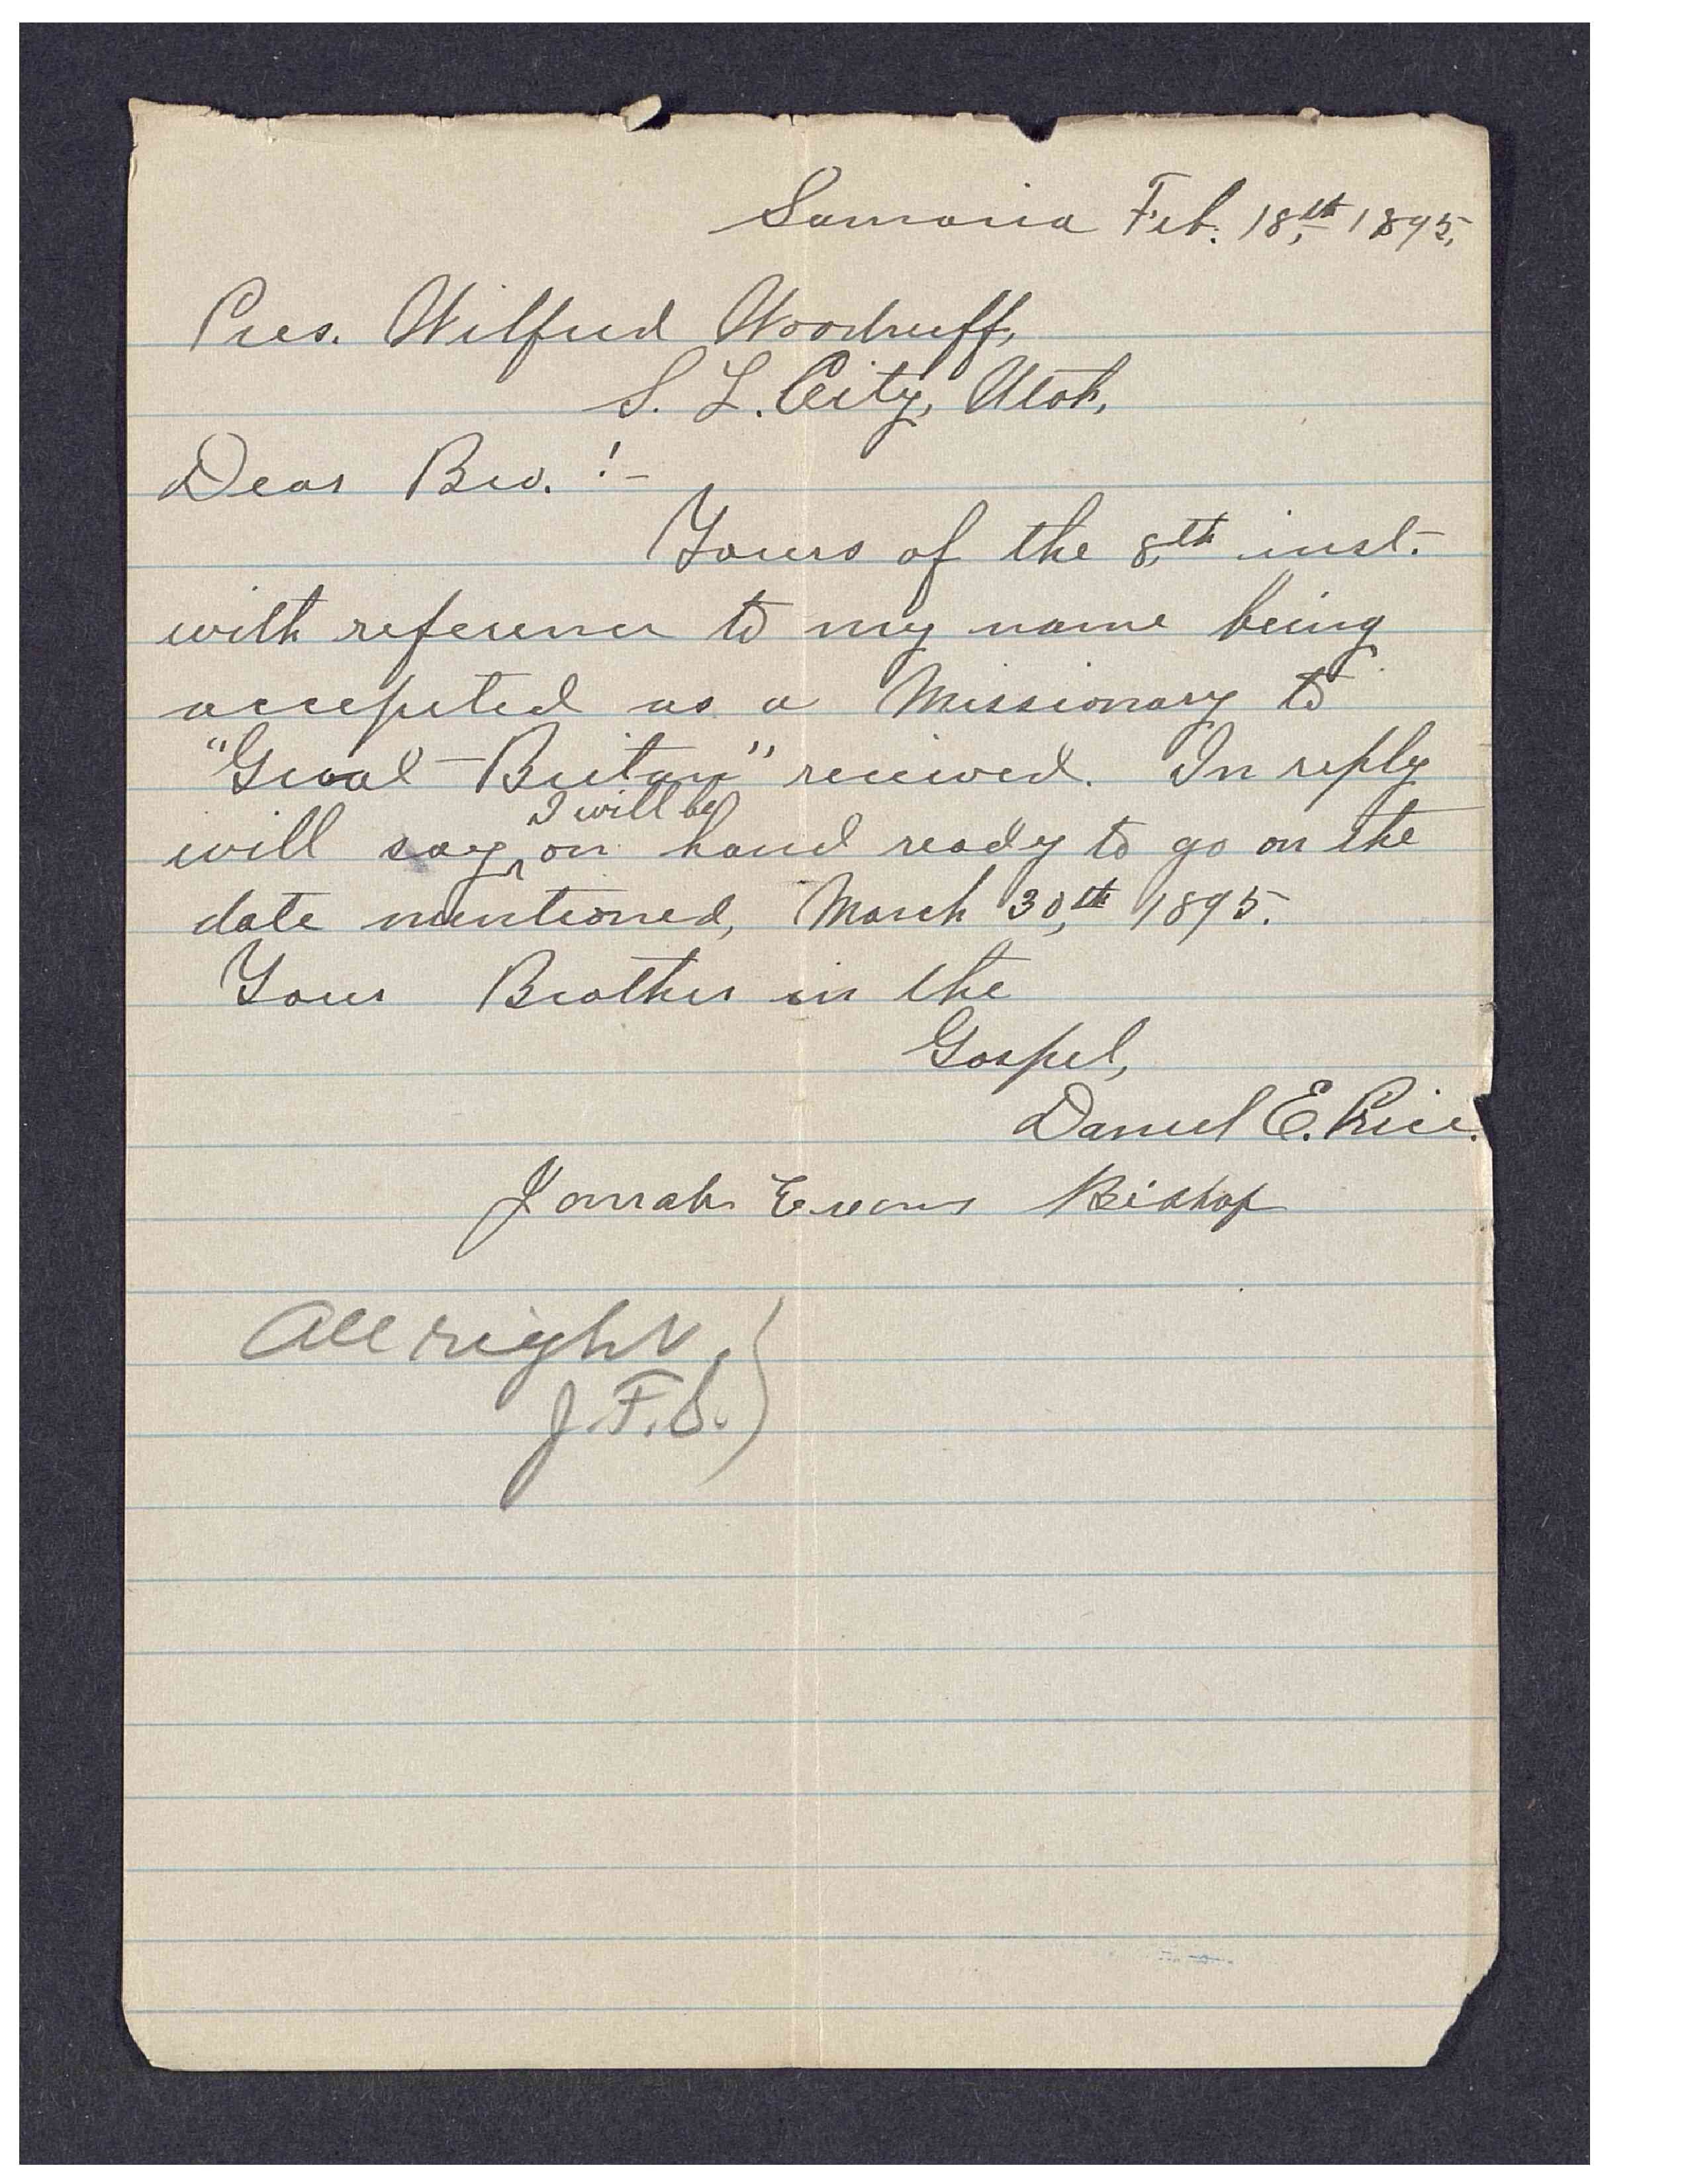 Samaria Feb. 18,th 1895,
Pres. Wilford Woodruff,
S. L. City, Utah,
Dear Bro. :-
Yours of the 8,th inst.
with reference to my name being
accepted as a Missionary to
"Great-Britain" recieved. In reply
I will be
will say, on hand ready to go on the
date mentioned, March 30,th 1895.
Your Brother in the
Gospel,
Daniel E. Price.
Jonah Evans Bishop
All right.
J.F.S.